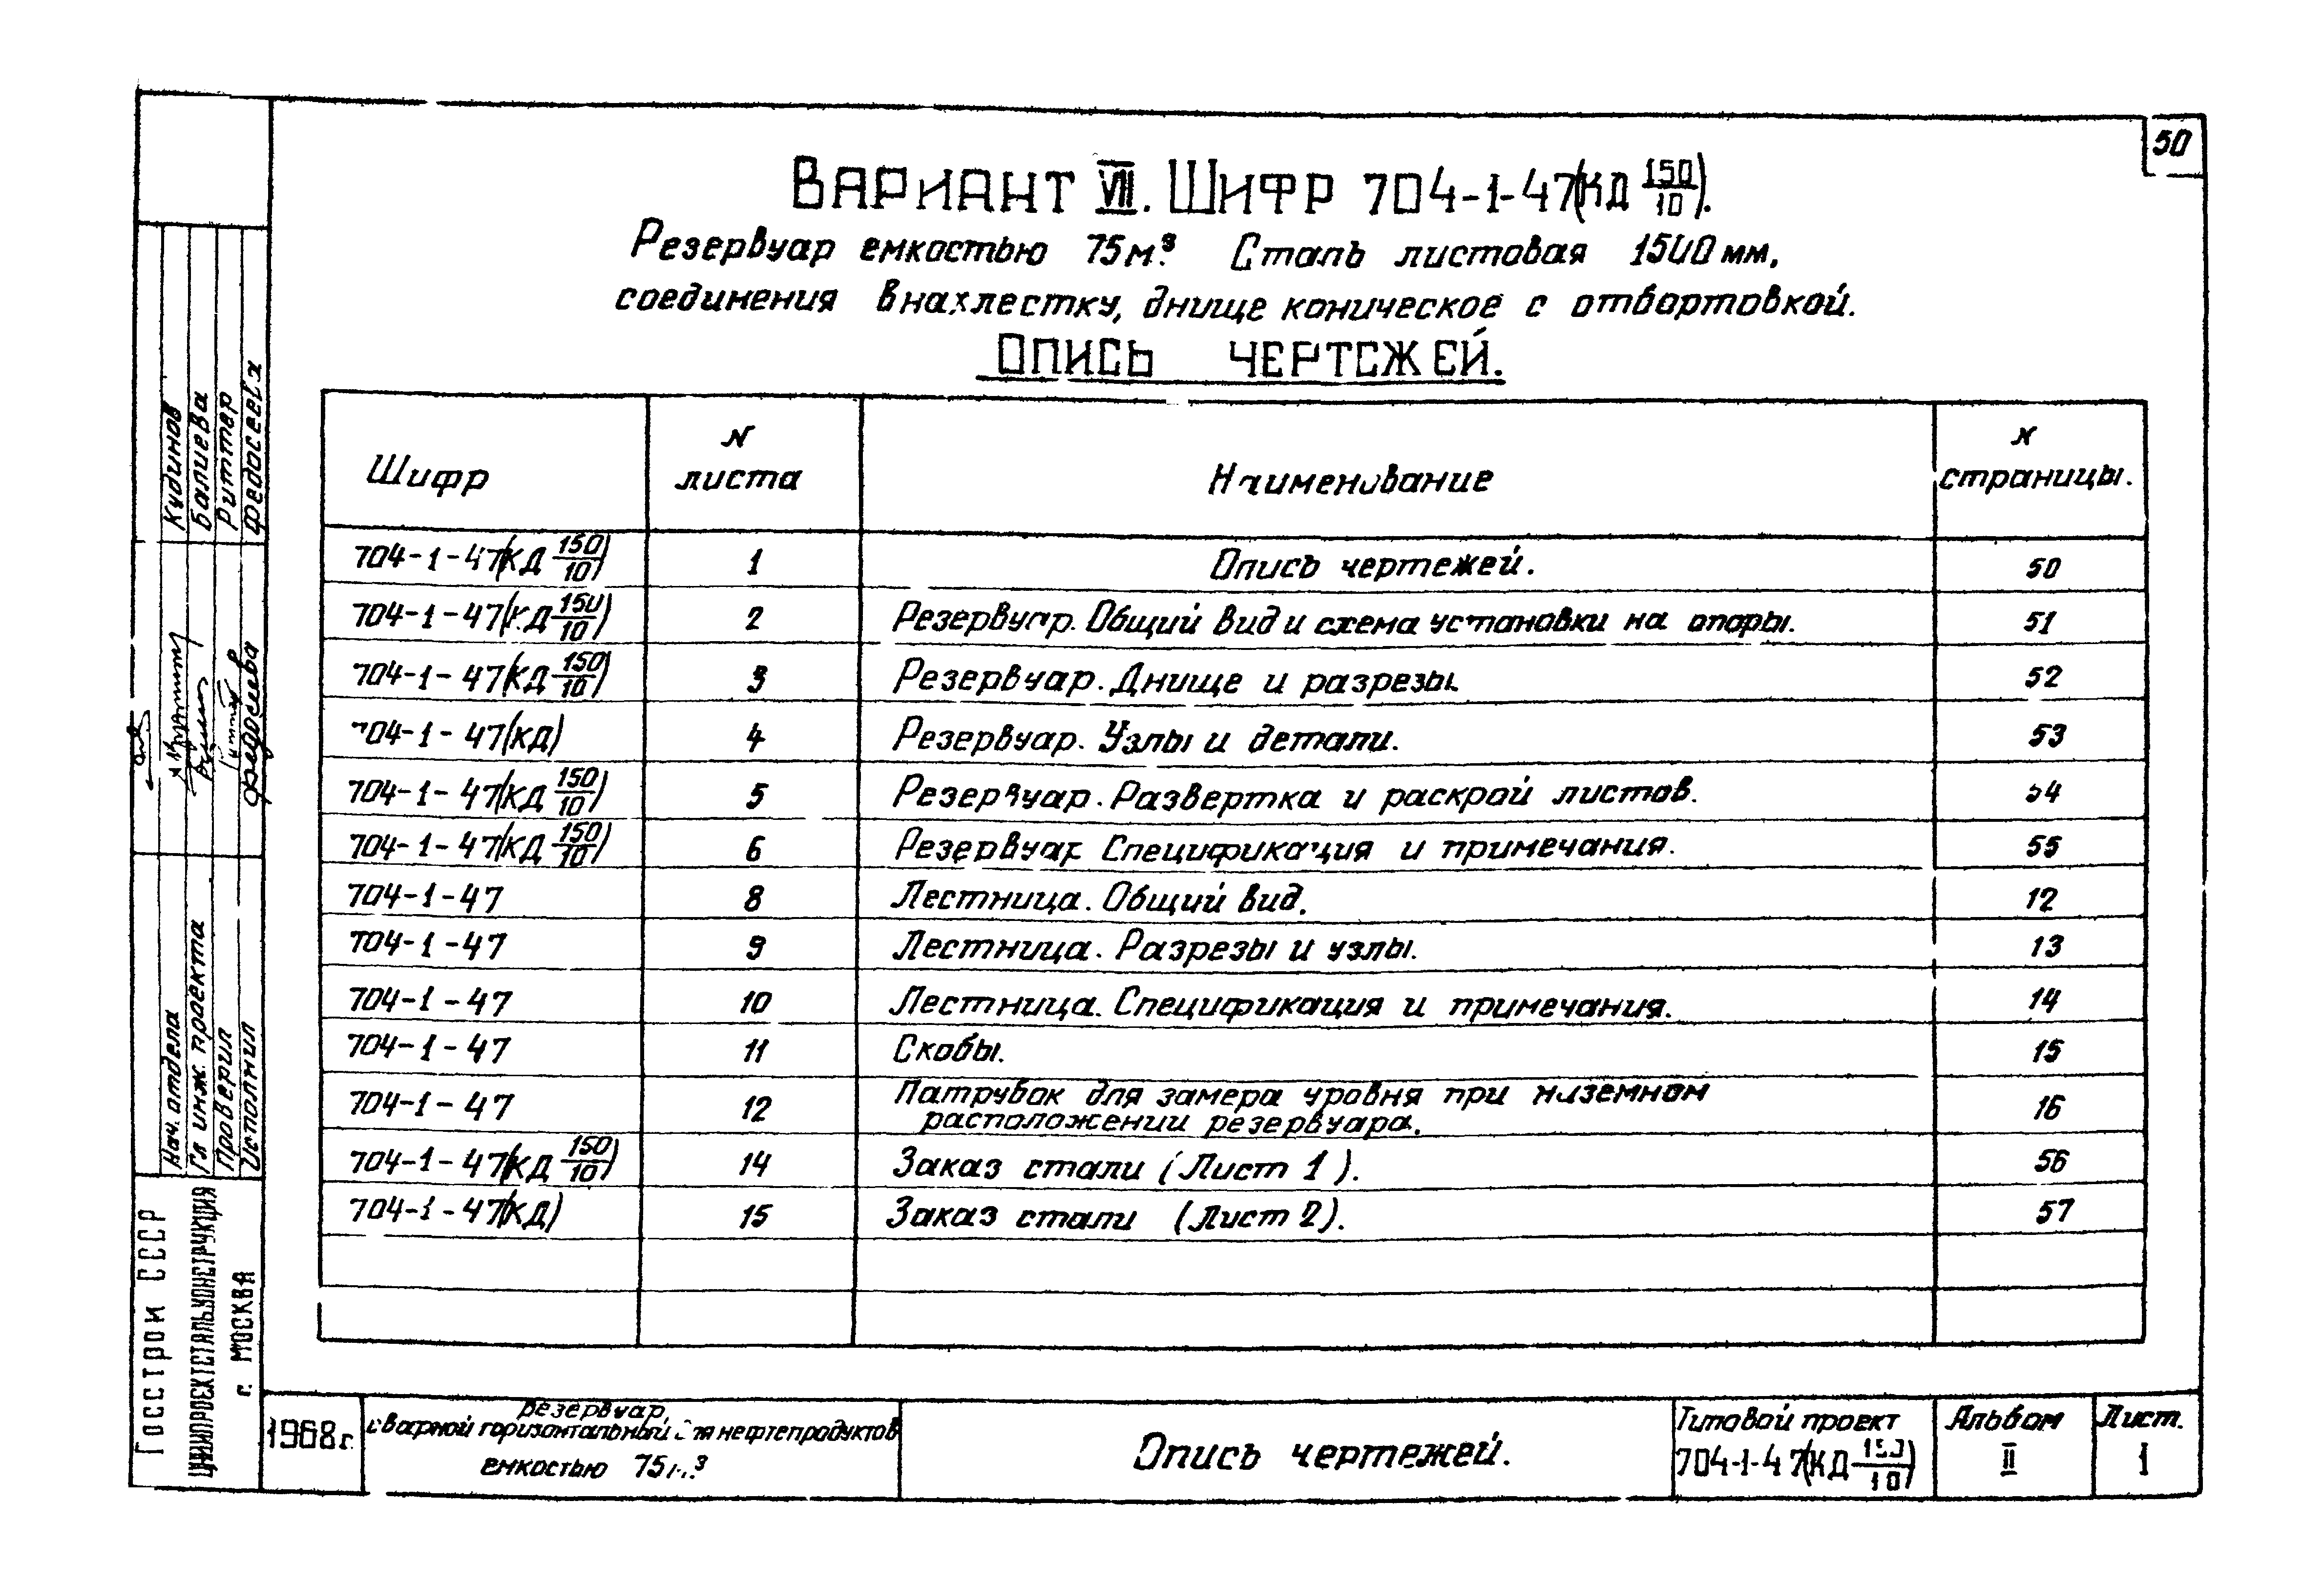 50
ВАРИАНТ VIII. ШИФР 704-1-47(КД 150/10).
Резервуар емкостью 75м³. Сталь листовая 1500 мм,
соединения внахлестку, днище коническое с отбортовкой.
ОПИСЬ ЧЕРТЕЖЕЙ.
Шифр | N листа | Наименование | N страницы.
704-1-47(КД 150/10) | 1 | Опись чертежей. | 50
704-1-47(КД 150/10) | 2 | Резервуар. Общий вид и схема установки на опоры. | 51
704-1-47(КД 150/10) | 3 | Резервуар. Днище и разрезы. | 52
704-1-47(КД) | 4 | Резервуар. Узлы и детали. | 53
704-1-47(КД 150/10) | 5 | Резервуар. Развертка и раскрой листов. | 54
704-1-47(КД 150/10) | 6 | Резервуар Спецификация и примечания. | 55
704-1-47 | 8 | Лестница. Общий вид. | 12
704-1-47 | 9 | Лестница. Разрезы и узлы. | 13
704-1-47 | 10 | Лестница. Спецификация и примечания. | 14
704-1-47 | 11 | Скобы. | 15
704-1-47 | 12 | Патрубок для замера уровня при наземном
расположении резервуара. | 16
704-1-47(КД 150/10) | 14 | Заказ стали (Лист 1). | 56
704-1-47(КД) | 15 | Заказ стали (Лист 2). | 57
Нач. отдела Кудинов
Гл инж. проекта Балиева
Проверил Риттер
Исполнил Федосеева Федосеева
Госстрой СССР
ЦНИИПРОЕКТСТАЛЬКОНСТРУКЦИЯ
г. МОСКВА
1968г.
резервуар,
сварной горизонтальный для нефтепродуктов
емкостью 75м.³
Опись чертежей.
Типовой проект
704-1-47(КД 150/10)
Альбом
II
Лист.
1